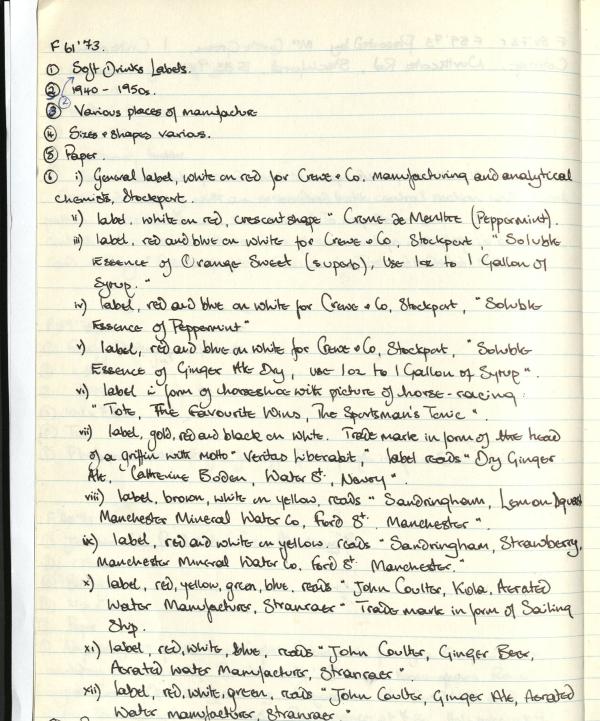 F61'73.
① Soft Drinks Labels.
② 1940 - 1950s.
②
③ Various places of manufacture
④ Sizes & shapes various.
⑤ Paper.
⑥ i) General label, white on red for Crewe & Co. manufacturing and analytical
chemists, Stockport.
ii) label, white on red, crescent shape "Creme de Menthe (Peppermint).
iii) label, red and blue on white for Crewe & Co, Stockport, "Soluble
Essence of Orange Sweet (superb), Use 1oz to 1 Gallon of
Syrup."
iv) label, red and blue on white for Crewe & Co, Stockport, "Soluble
Essence of Peppermint"
v) label, red and blue on white for Crewe & Co, Stockport, "Soluble
Essence of Ginger Ale Dry, use 1oz to 1 Gallon of Syrup".
vi) label in form of horseshoe with picture of horse-racing:
"Tote, The Favourite Wins, The Sportsman's Tonic".
vii) label, gold, red and black on white. Trade mark in form of the head
of a griffin with motto "Veritas liberabit," label reads "Dry Ginger
Ale, Catherine Boden, Water St., Newry".
viii) label, brown, white on yellow, reads "Sandringham, Lemon
Manchester Mineral Water Co, Ford St. Manchester".
ix) label, red and white on yellow, reads "Sandringham, Strawberry,
Manchester Mineral Water Co. Ford St. Manchester."
x) label, red, yellow, green, blue, reads "John Coulter, Kola, Aerated
Water Manufacturer, Stranraer" Trade mark in form of Sailing
Ship.
xi) label, red, white, blue, reads "John Coulter, Ginger Beer,
Aerated Water Manufacturer, Stranraer".
xii) label, red, white, green, reads "John Coulter, Ginger Ale, Aerated
Water manufacturer, Stranraer."